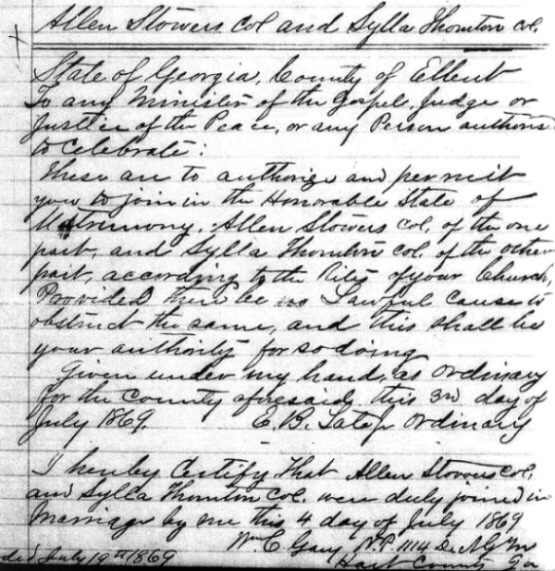 Allen Stowers Col and Sylla Thornton col.
State of Georgia, County of Elbert
To any Minister of the Gospel, Judge or
Justice of the Peace, or any Person authoris
to Celebrate:
These are to authorize and permit
you to join in the Honorable State of
Matrimony, Allen Stowers col. of the one
part, and Sylla Thornton col. of the other
part, according to the Rites of your Church,
Provided there be no Lawful cause to
obstruct the same, and this shall be
your authority for so doing
Given under my hand, as ordinary
for the County aforesaid, this 3rd day of
July 1869. E. B. Tate Jr Ordinary
I hereby Certify That Allen Stowers Col,
and Sylla Thornton Col. were duly joined in
Marriage by me this 4 day of July 1869
Wm C. N.P. 1114 Dis G M
Hart County Ga
ded July 19th 1869